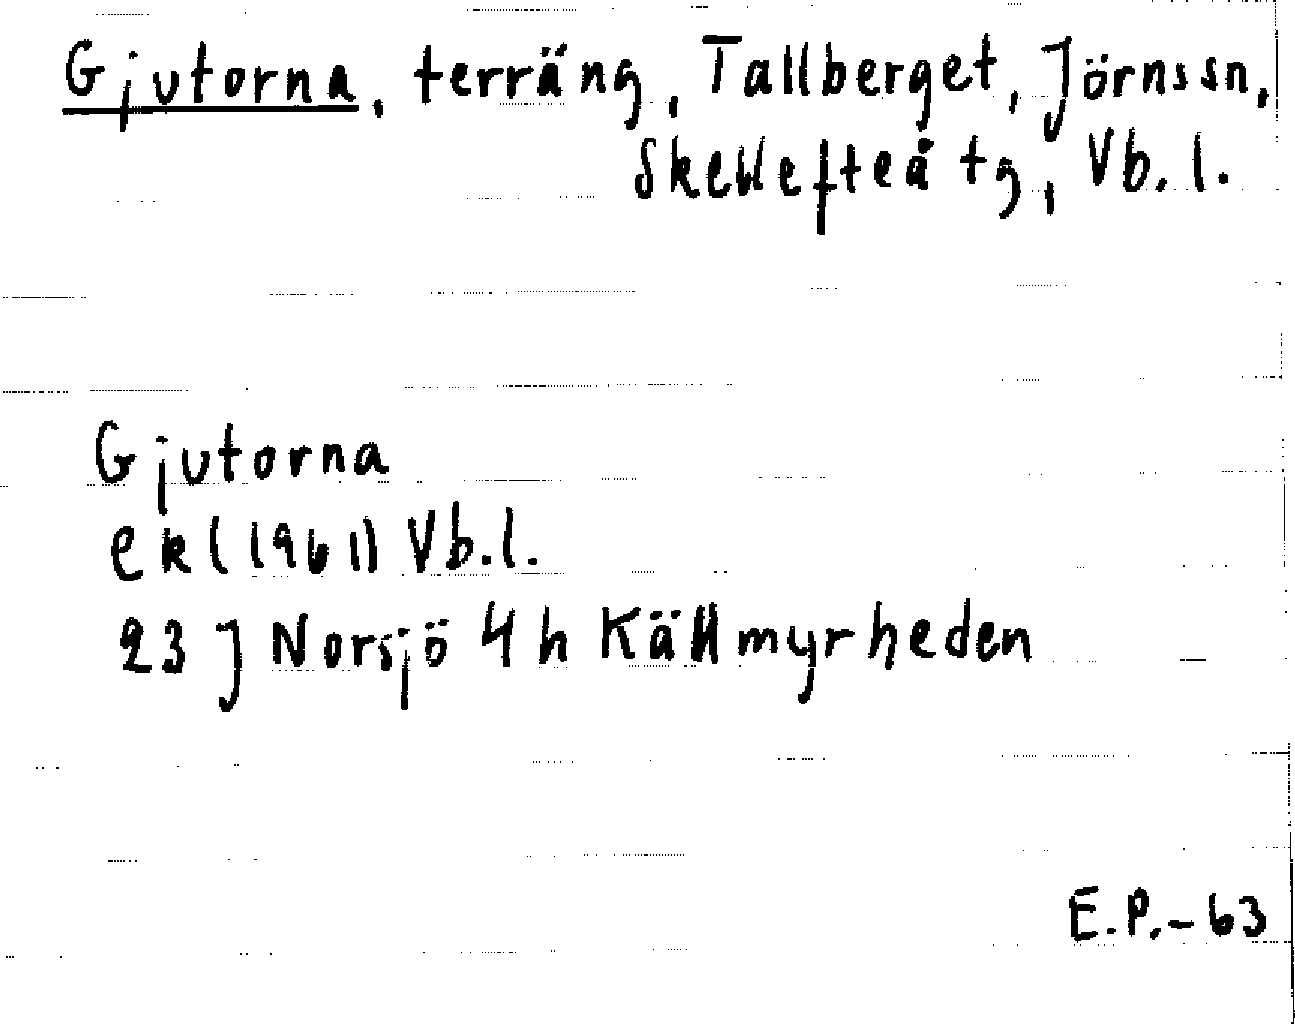 Gjutorna, terräng, Tallberget, Jörnssn,
Skellefteå tg, Vb. l.
Gjutorna
ek (1961) Vb. l.
23 J Norsjö 4 h Källmyrheden
E.P.-63